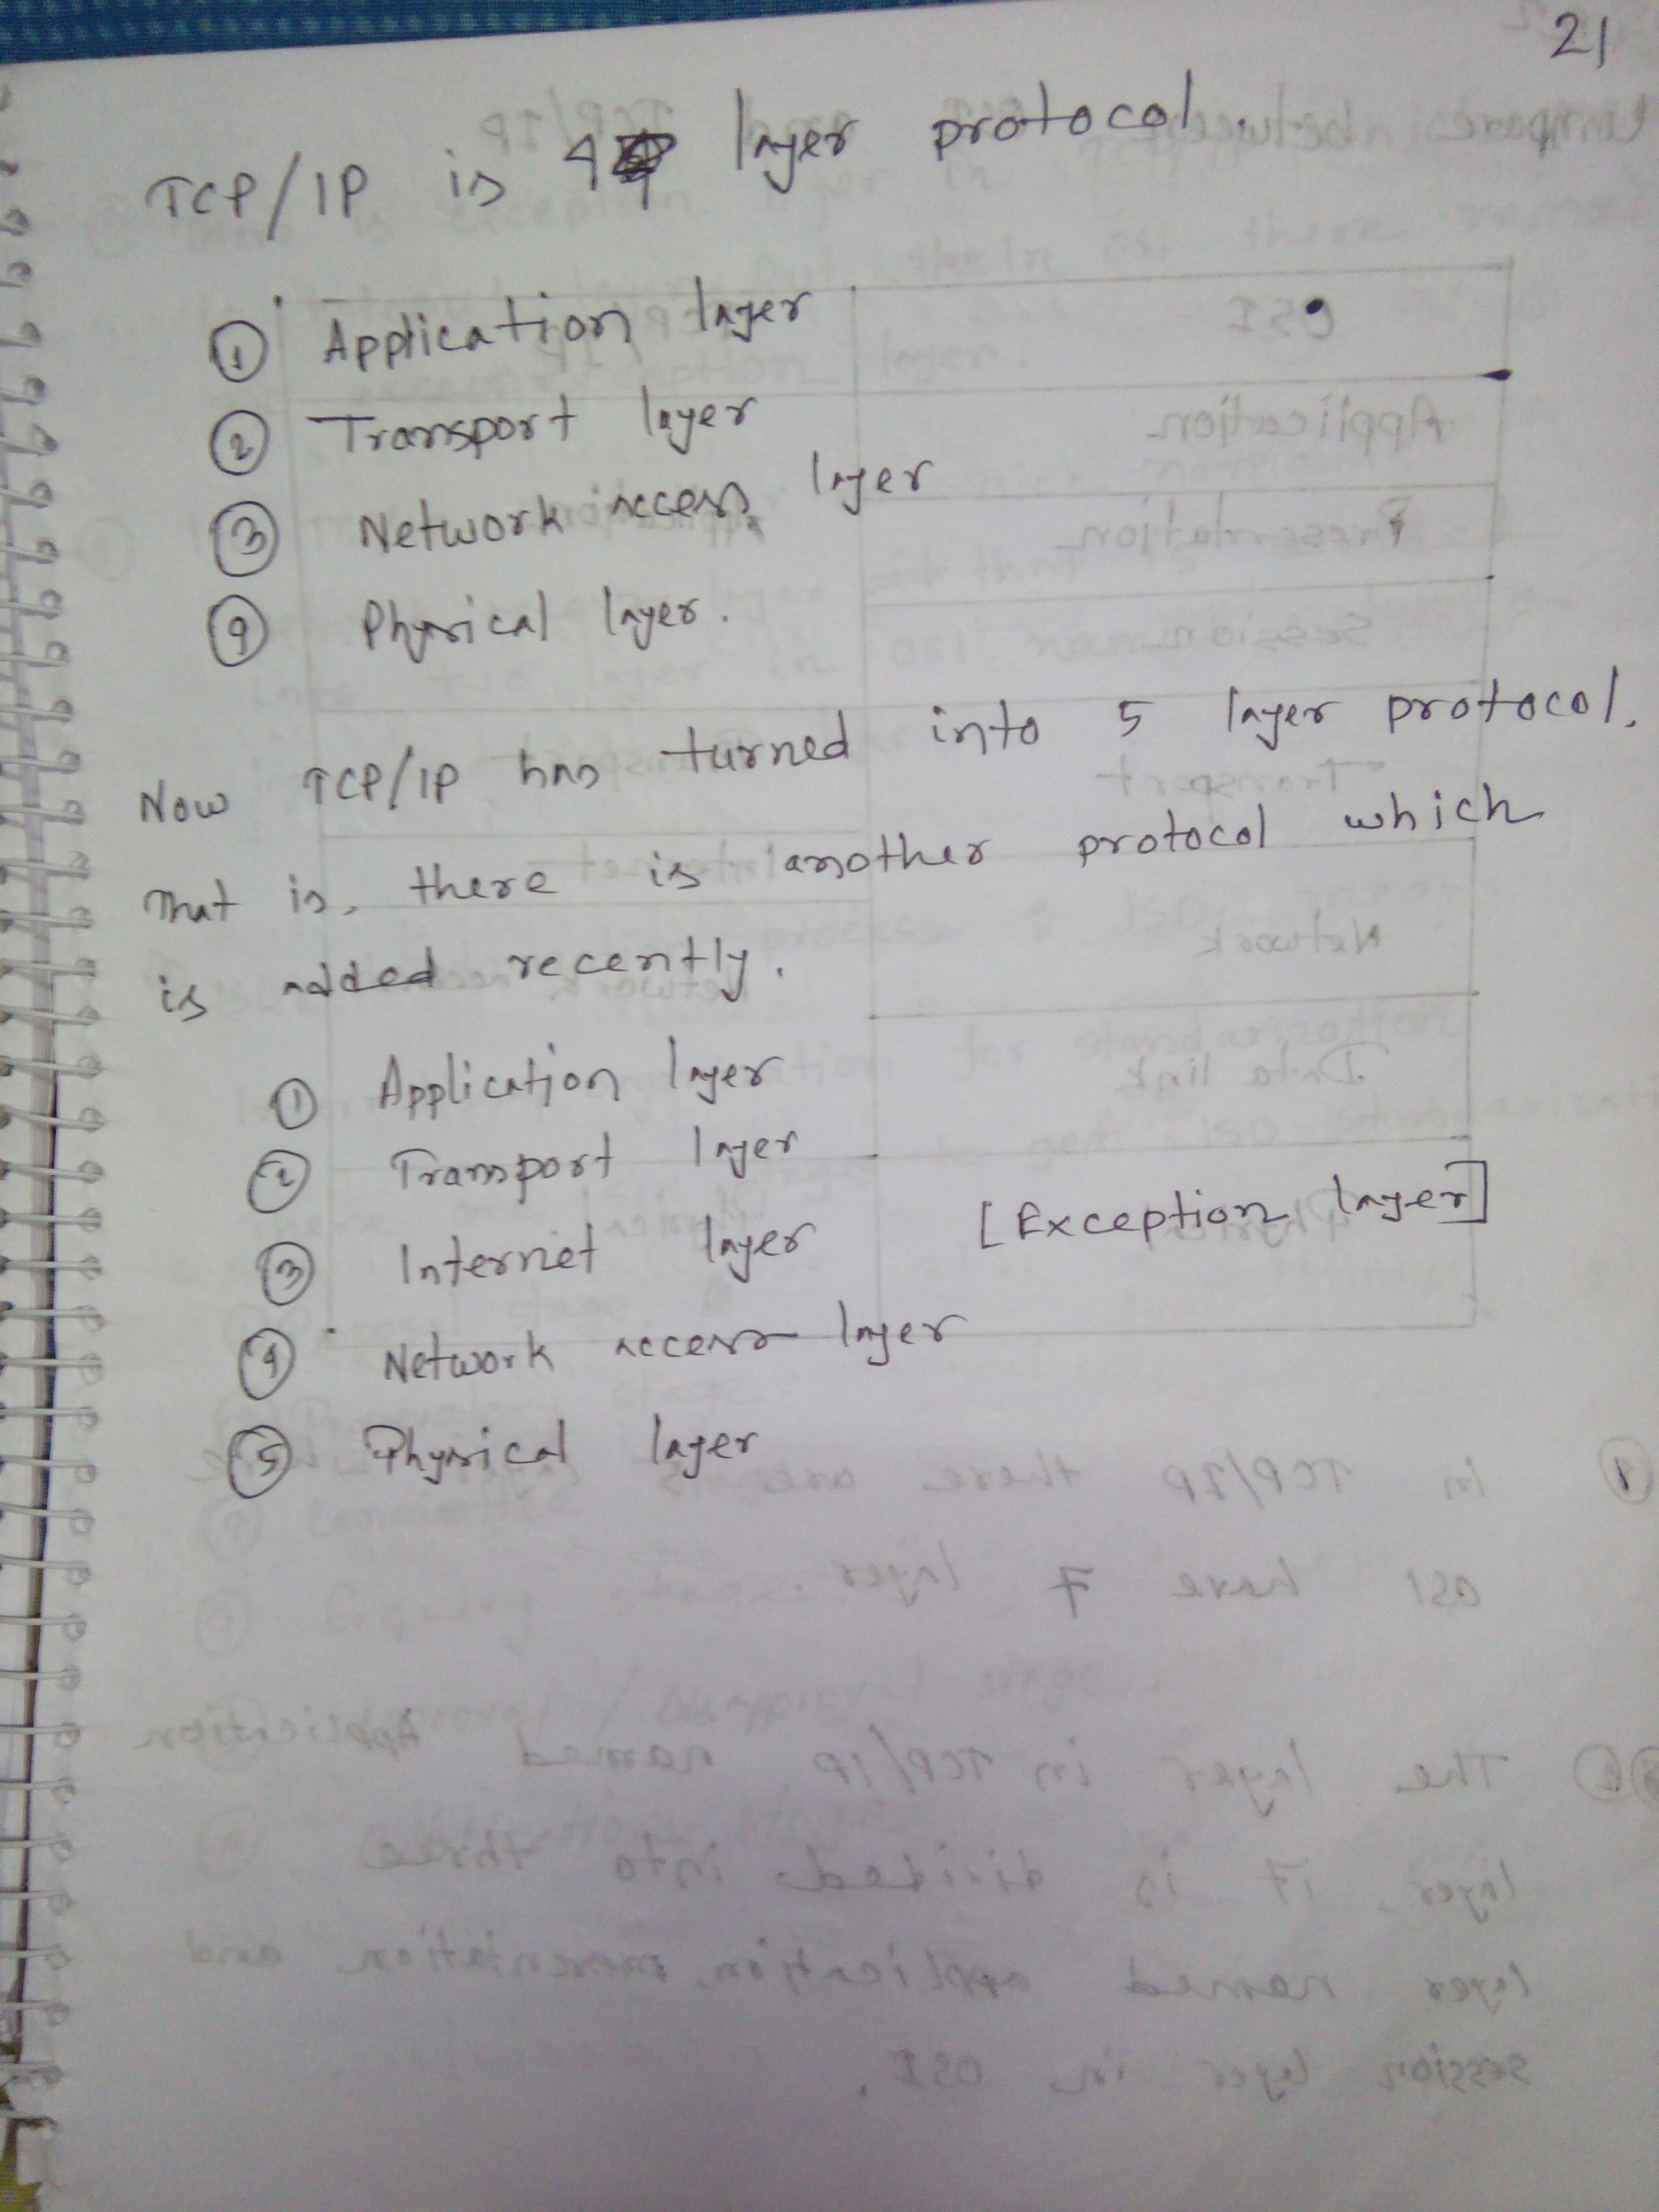 21
TCP/IP is 4 layer protocol.
① Application layer
② Transport layer
③ Network access layer
④ Physical layer.
Now TCP/IP has turned into 5 layer protocol.
That is, there is another protocol which
is added recently.
① Application layer
② Transport layer
③ Internet layer [Exception layer]
④ Network access layer
⑤ Physical layer